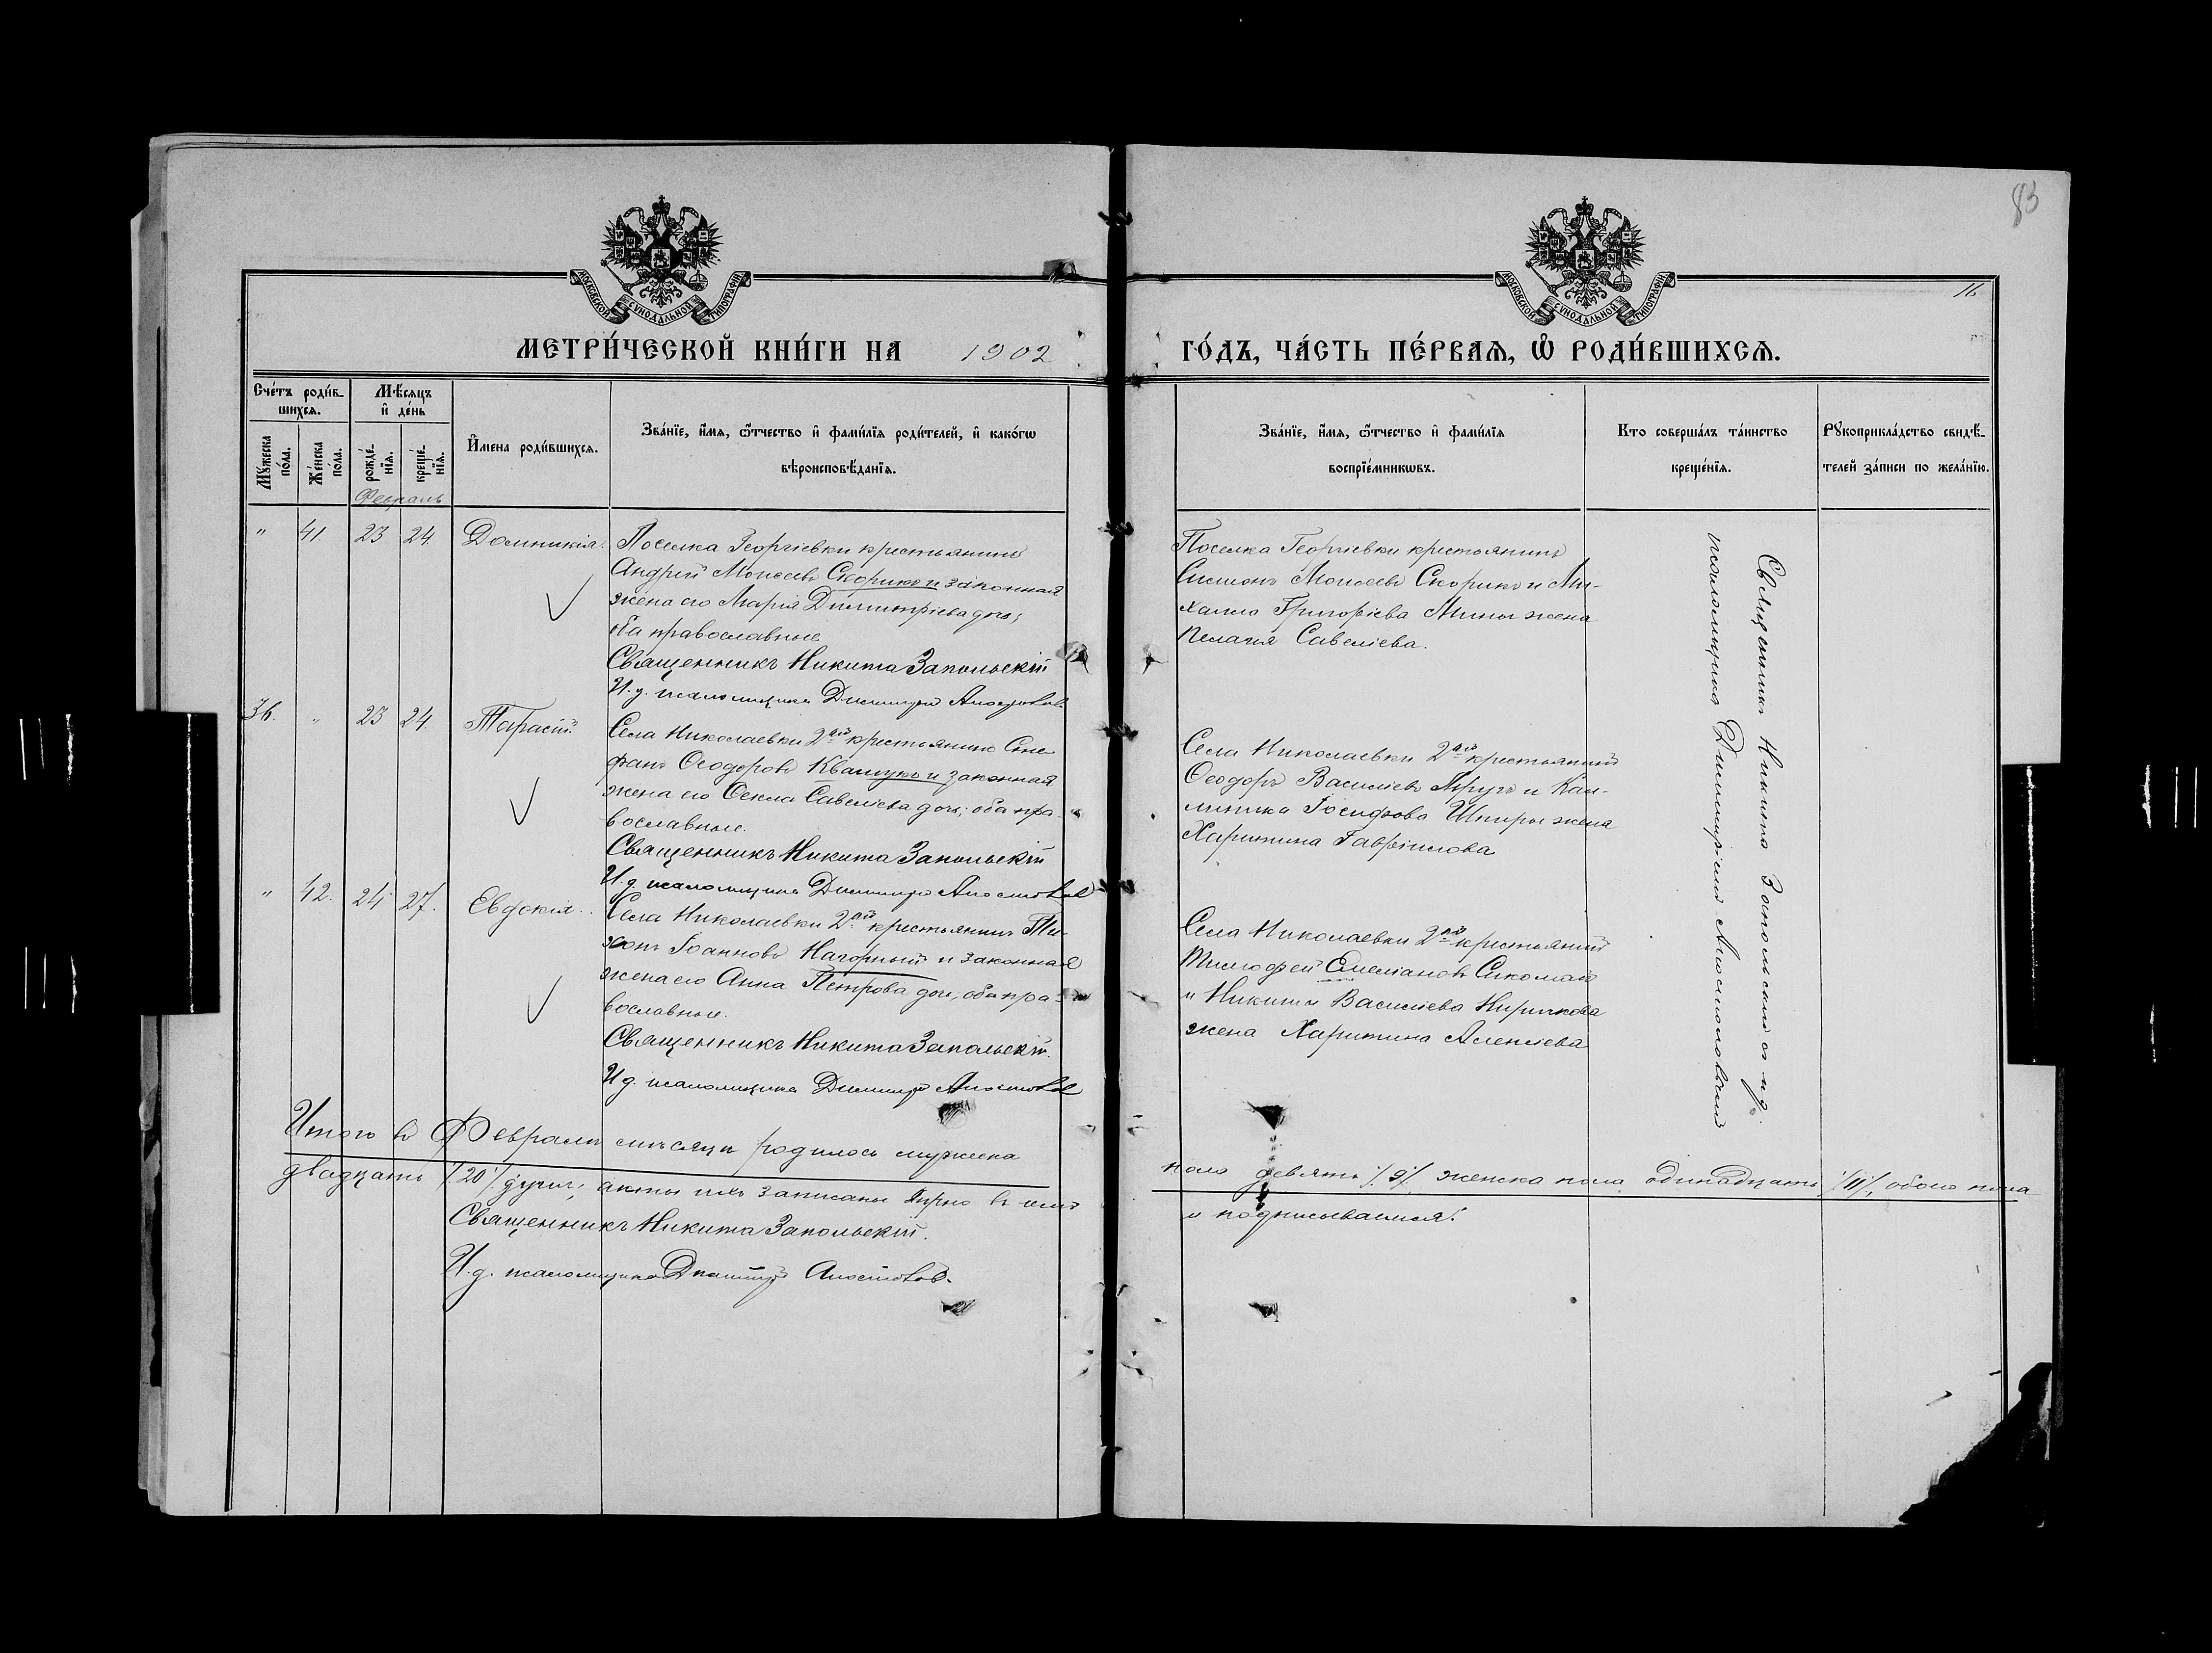 83
16
МОСКОВСКОЙ СѴНОДАЛЬНОЙ ТИПОГРАФІИ
МОСКОВСКОЙ СѴНОДАЛЬНОЙ ТИПОГРАФІИ
МЕТРИ́ЧЕСКОЙ КНИ́ГИ НА 1902 ГО́ДЪ, ЧА́СТЬ ПЕ́РВАѦ, Ѽ РОДИ́ВШИХСѦ.
Сче́тъ роди́в-
шихсѧ.
Мѣ́сѧцъ
и҆ де́нь
Мꙋ́жеска
по́ла.
Же́нска
по́ла.
рожде́-
нїѧ.
креще́-
нїѧ.
И҆мена роди́вшихсѧ.
Зва́нїе, и҆́мѧ, ѻ҆́тчество и҆ фами́лїѧ роди́телей, и҆ како́гѡ
вѣроисповѣ́данїѧ.
Зва́нїе, и҆́мѧ, ѻ҆́тчество и҆ фами́лїѧ
воспрїе́мникѡвъ.
Кто соверша́лъ та́инство
креще́нїѧ.
Рꙋкоприкла́дство свидѣ́-
телей за́писи по жела́нїю.
Февраль
" 41 23 24. Домникія.
Поселка Георгіевки крестьянинъ
Андрей Моисеевъ Скорикъ и законная
жена его Марія Димитріева дочь;
оба православные
Священникъ Никита Запольскій
И. д. псаломщика Димитрій
Поселка Георгіевки крестьянинъ
Симеонъ Моисеевъ Скорикъ и Ми-
хаила Григоріева Мины жена
Пелагія Савеліева.
36. " 23 24. Тарасій.
Села Николаевки 2ай крестьянинъ Сте
фанъ Ѳеодоровъ Квашукъ и законная
жена его Ѳекла Савеліева дочь; оба пра-
вославные.
Священникъ Никита Запольскій
И. д. псаломщика Димитрій
Села Николаевки 2ай крестьянинъ
Ѳеодоръ Василіевъ и Кал-
линика Іосифова Шпиры жена
Харитина Гавріилова
" 42. 24 27. Евдокія.
Села Николаевки 2ай крестьянинъ Ти-
хонъ Іоанновъ Нагорный и законная
жена его Анна Петрова дочь; оба пра-
вославные.
Священникъ Никита Запольскій.
И д. псаломщика Димитрій
Села Николаевки 2ай крестьянинъ
Тимофей Емеліановъ
и Никиты Василіева Киричкова
жена Харитина Алексіева
Священникъ Никита Запольскій съ и. д.
псаломщика Димитріемъ
Итого въ Февралѣ мѣсяцѣ родилось мужеска пола девять /9/, женска пола одинадцать /11/, обоего пола
двадцать /20/ душъ; акты ихъ записаны вѣрно въ чемъ и подписываемся:
Священникъ Никита Запольскій.
И. д. псаломщика Димитрій